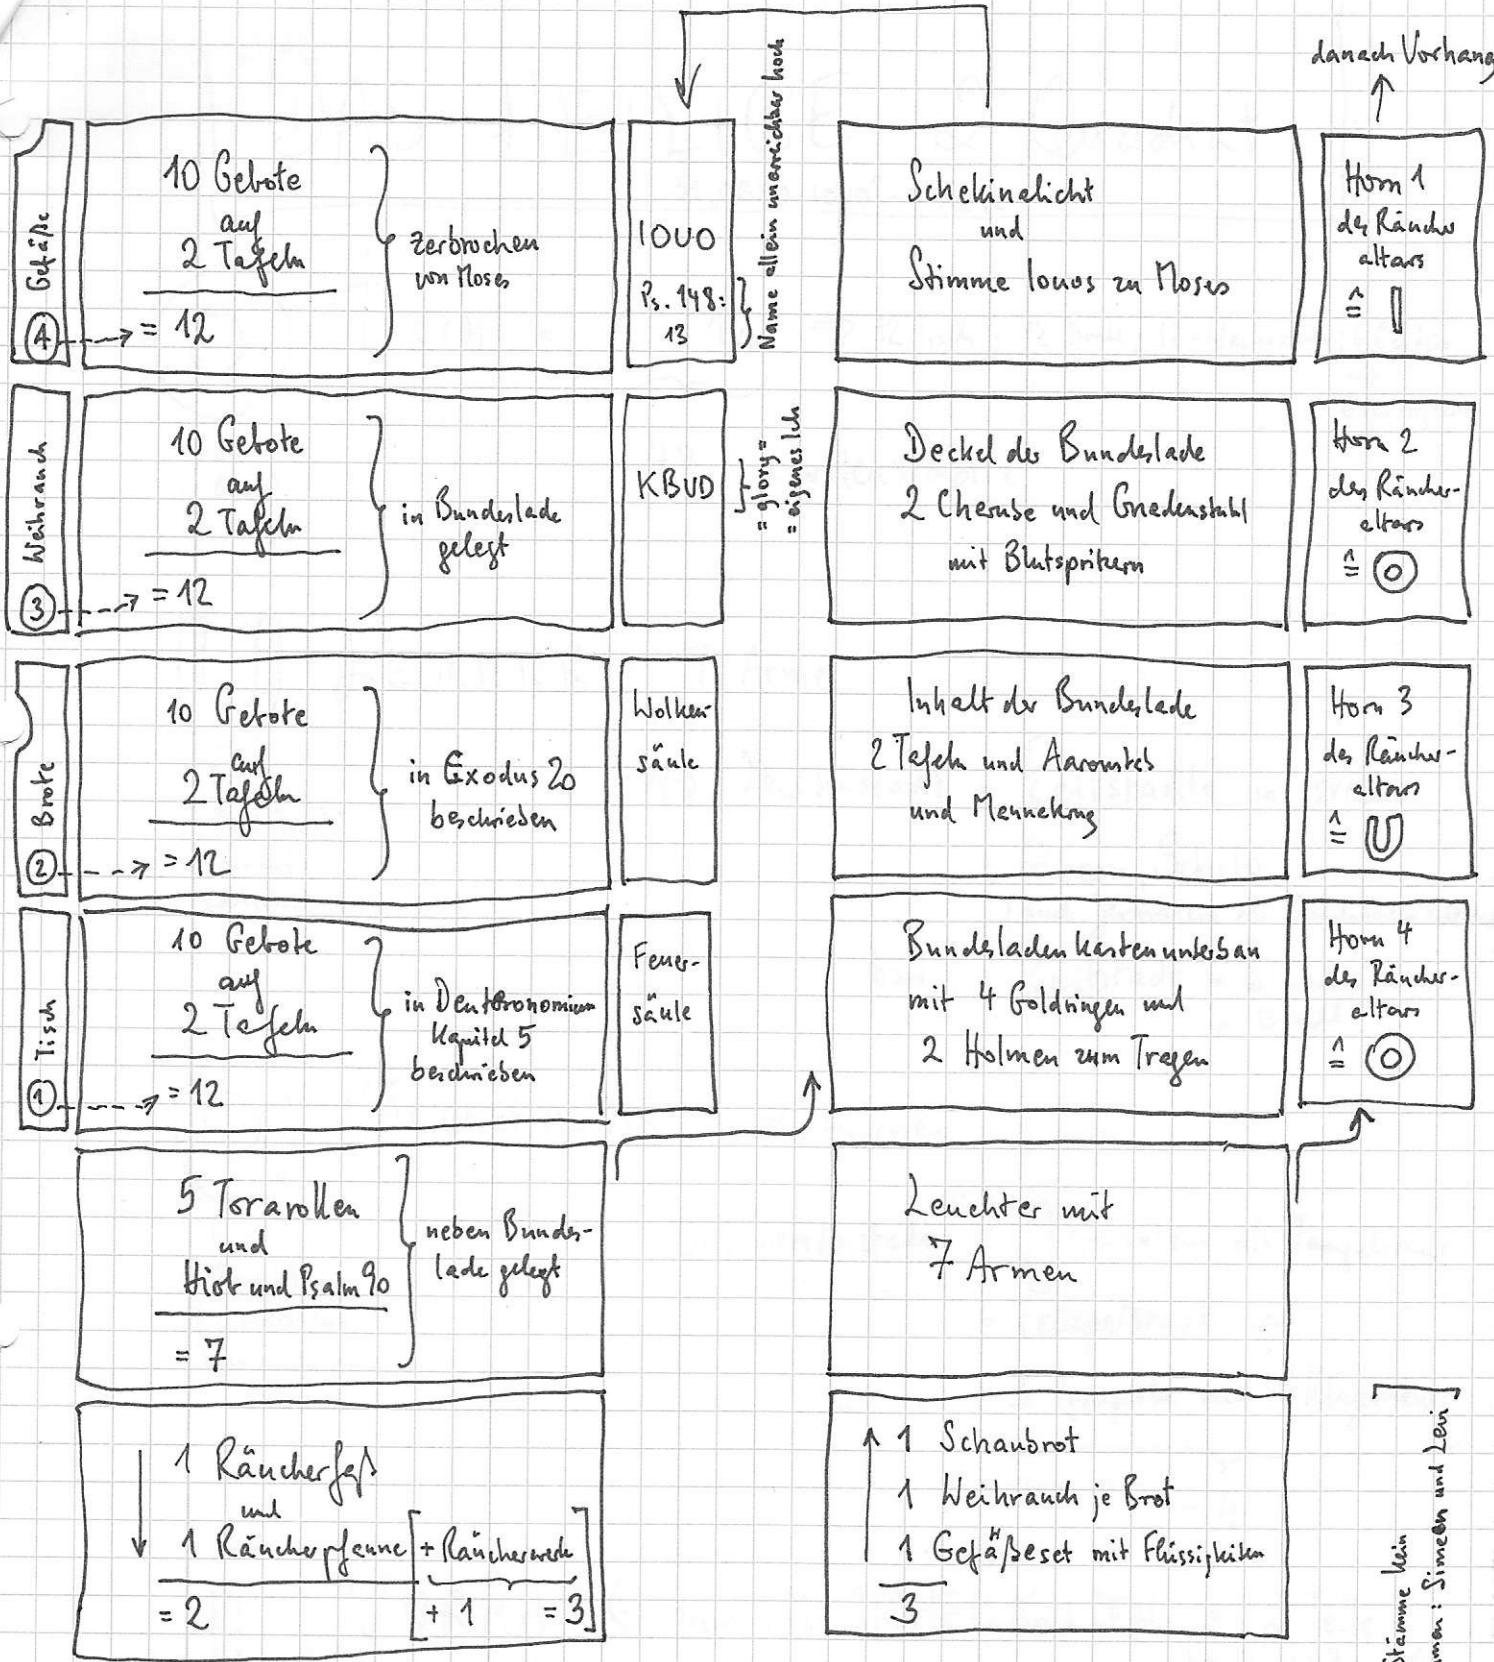 danach Vorhang
Gefäße
4
10 Gebote
auf
2 Tafeln
= 12
zerbrochen
von Moses
IOUO
Ps. 148:
13
Name allein unerreichbar hoch
Schekinalicht
und
Stimme Iouos zu Moses
Horn 1
des Räucher
altars
≙
Weihrauch
3
10 Gebote
auf
2 Tafeln
= 12
in Bundeslade
gelegt
KBUD
= glory =
= eigenes Ich
Deckel der Bundeslade
2 Cherube und Gnadenstuhl
mit Blutspritzern
Horn 2
des Räucher-
altars
≙
Brote
2
10 Gebote
auf
2 Tafeln
= 12
in Exodus 20
beschrieben
Wolken-
säule
Inhalt der Bundeslade
2 Tafeln und Aaronstab
und Mannakrug
Horn 3
des Räucher-
altars
≙
Tisch
1
10 Gebote
auf
2 Tafeln
= 12
in Deuteronomium
Kapitel 5
beschrieben
Feuer-
säule
Bundesladenkastenunterbau
mit 4 Goldringen und
2 Holmen zum Tragen
Horn 4
des Räucher-
altars
≙
5 Torarollen
und
Hiob und Psalm 90
= 7
neben Bundes-
lade gelegt
Leuchter mit
7 Armen
1 Räucherfaß
und
1 Räucherpfanne [+ Räucherwerk]
= 2 [+ 1 = 3]
1 Schaubrot
1 Weihrauch je Brot
1 Gefäßeset mit Flüssigkeiten
3
Stämme kein
: Simeon und Levi